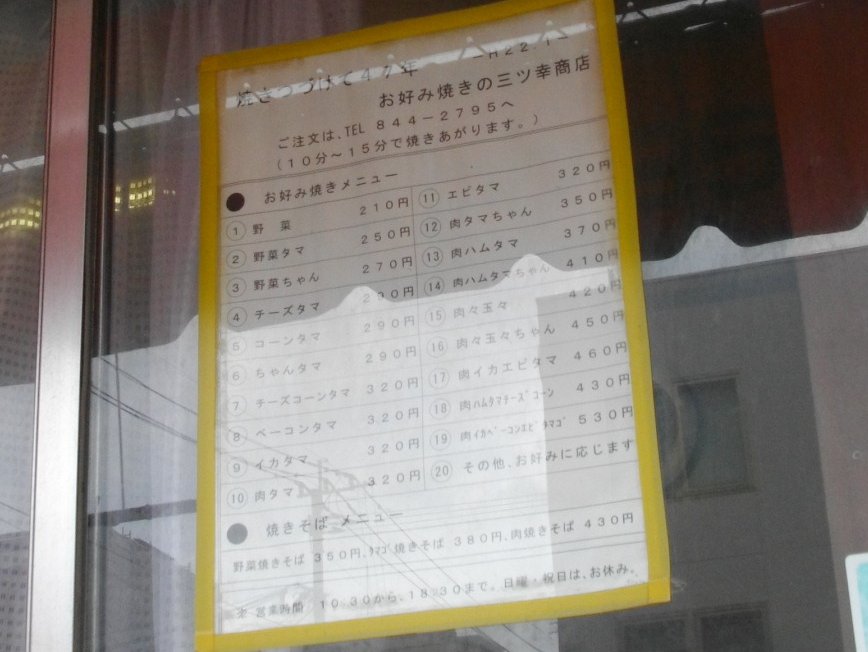 焼きつづけて47年 H22.1
お好み焼きの三ツ幸商店
ご注文は、TEL 844-2795へ
(10分〜15分で焼きあがります。)
● お好み焼きメニュー
① 野 菜 210円
② 野菜タマ 250円
③ 野菜ちゃん 270円
④ チーズタマ 290円
⑤ コーンタマ 290円
⑥ ちゃんタマ 290円
⑦ チーズコーンタマ 320円
⑧ ベーコンタマ 320円
⑨ イカタマ 320円
⑩ 肉タマ 320円
⑪ エビタマ 320円
⑫ 肉タマちゃん 350円
⑬ 肉ハムタマ 370円
⑭ 肉ハムタマちゃん 410円
⑮ 肉々玉々 420円
⑯ 肉々玉々ちゃん 450円
⑰ 肉イカエビタマ 460円
⑱ 肉ハムタマチーズコーン 430円
⑲ 肉イカベーコンエビタマゴ 530円
⑳ その他、お好みに応じます
● 焼きそば メニュー
野菜焼きそば 350円、タマゴ焼きそば 380円、肉焼きそば 430円
※ 営業時間 10:30から、18:30まで。日曜・祝日は、お休み。